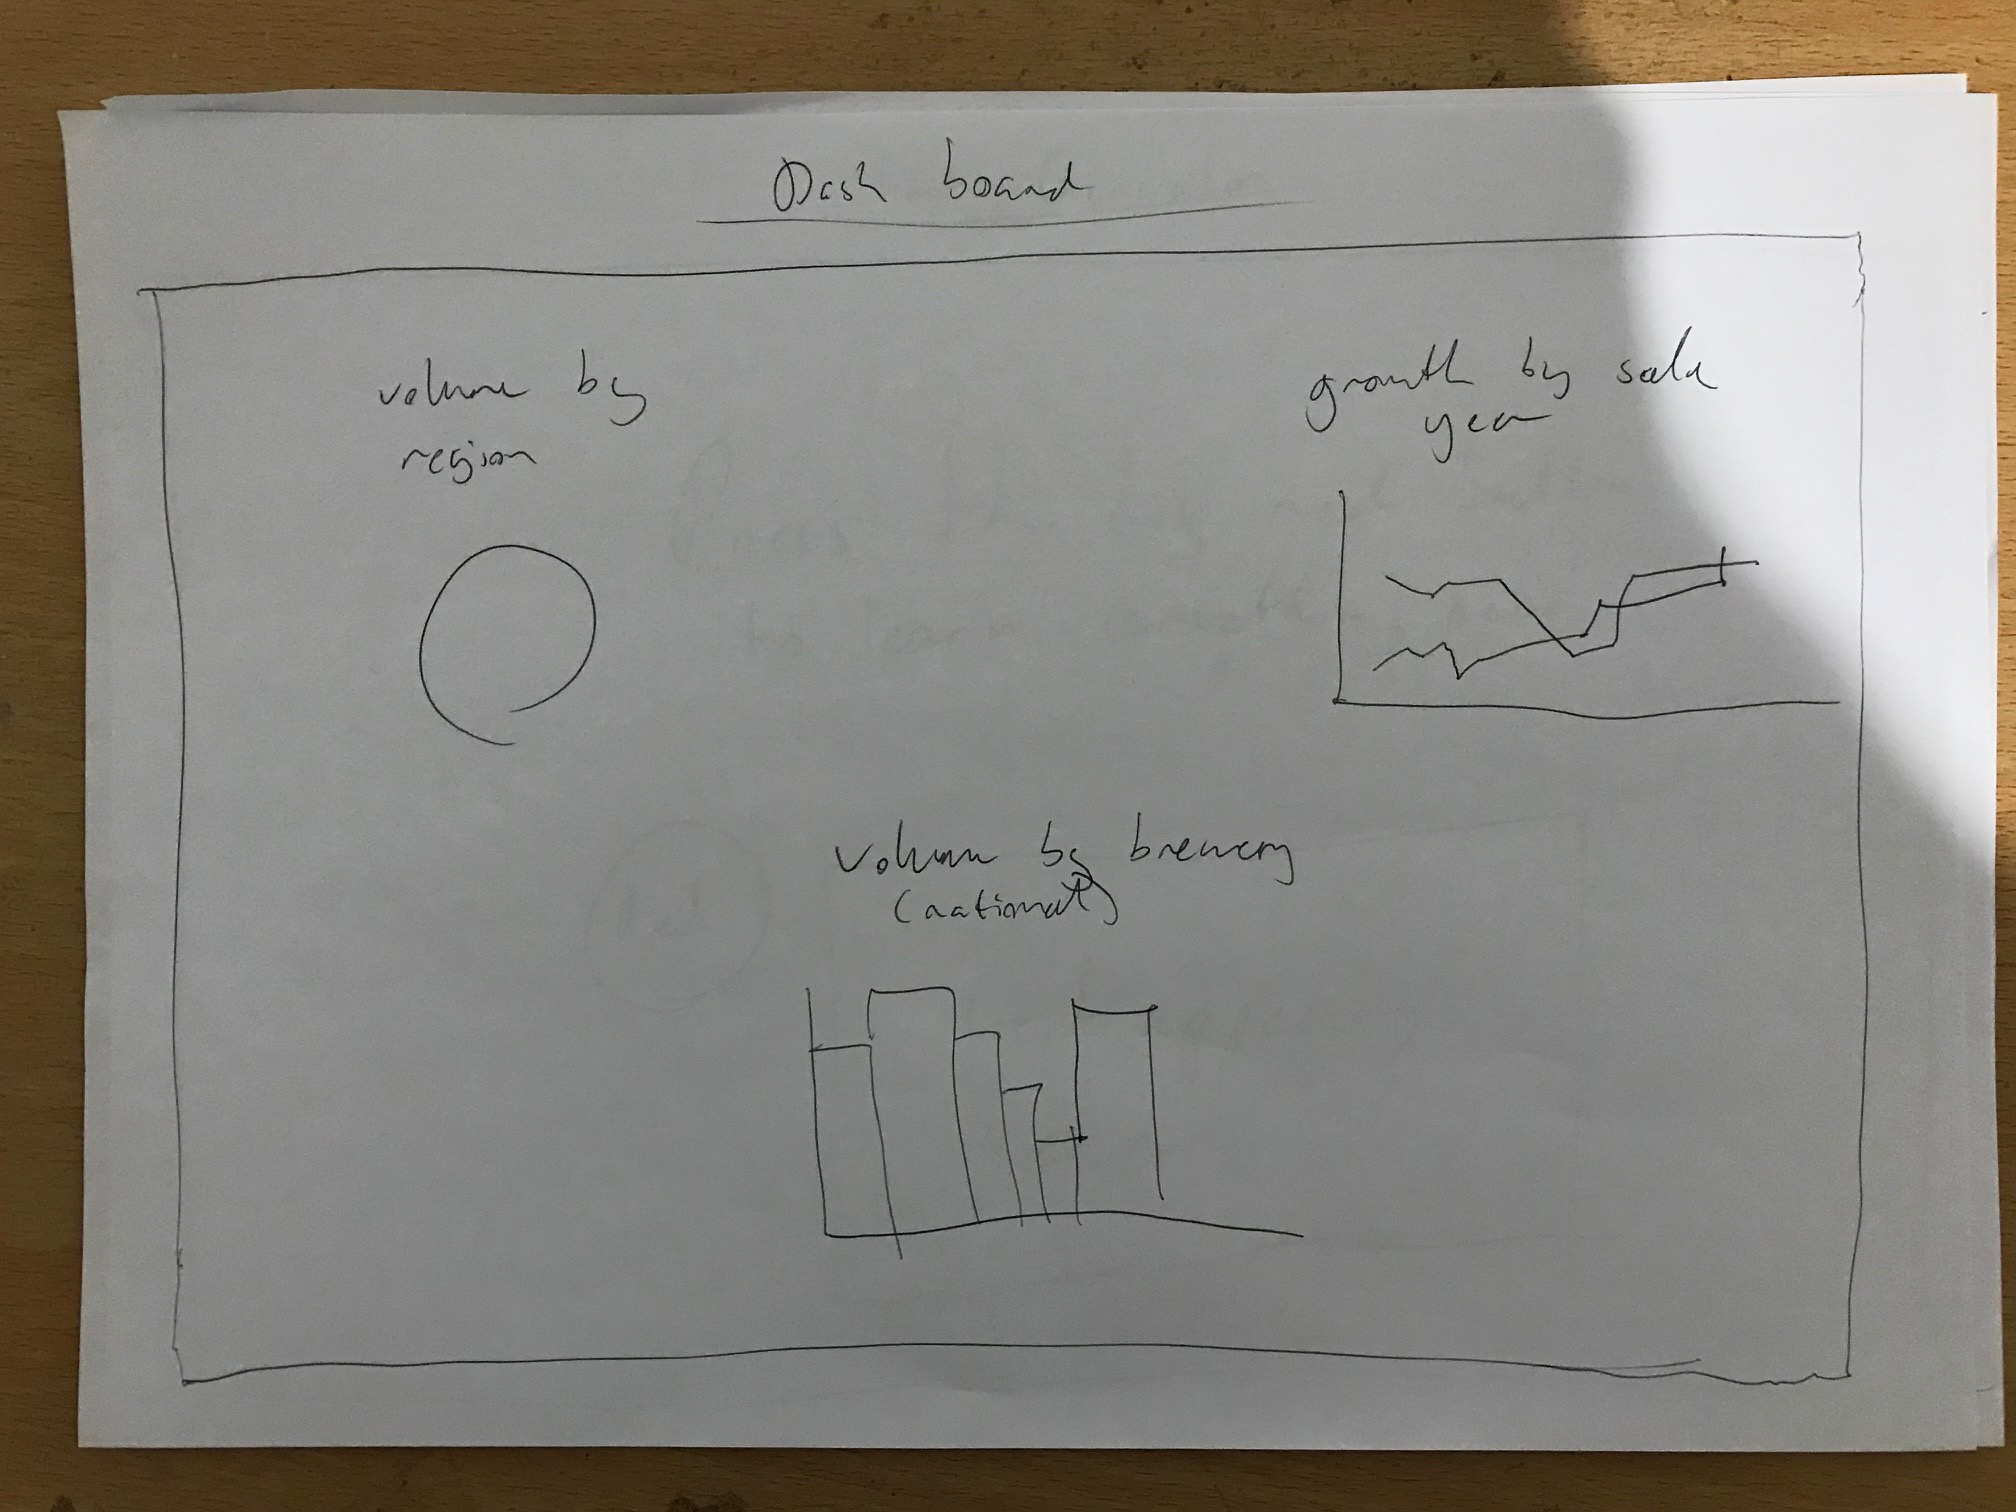 Dash board
volume by
region
growth by sale
year
volume by brewery
(national)